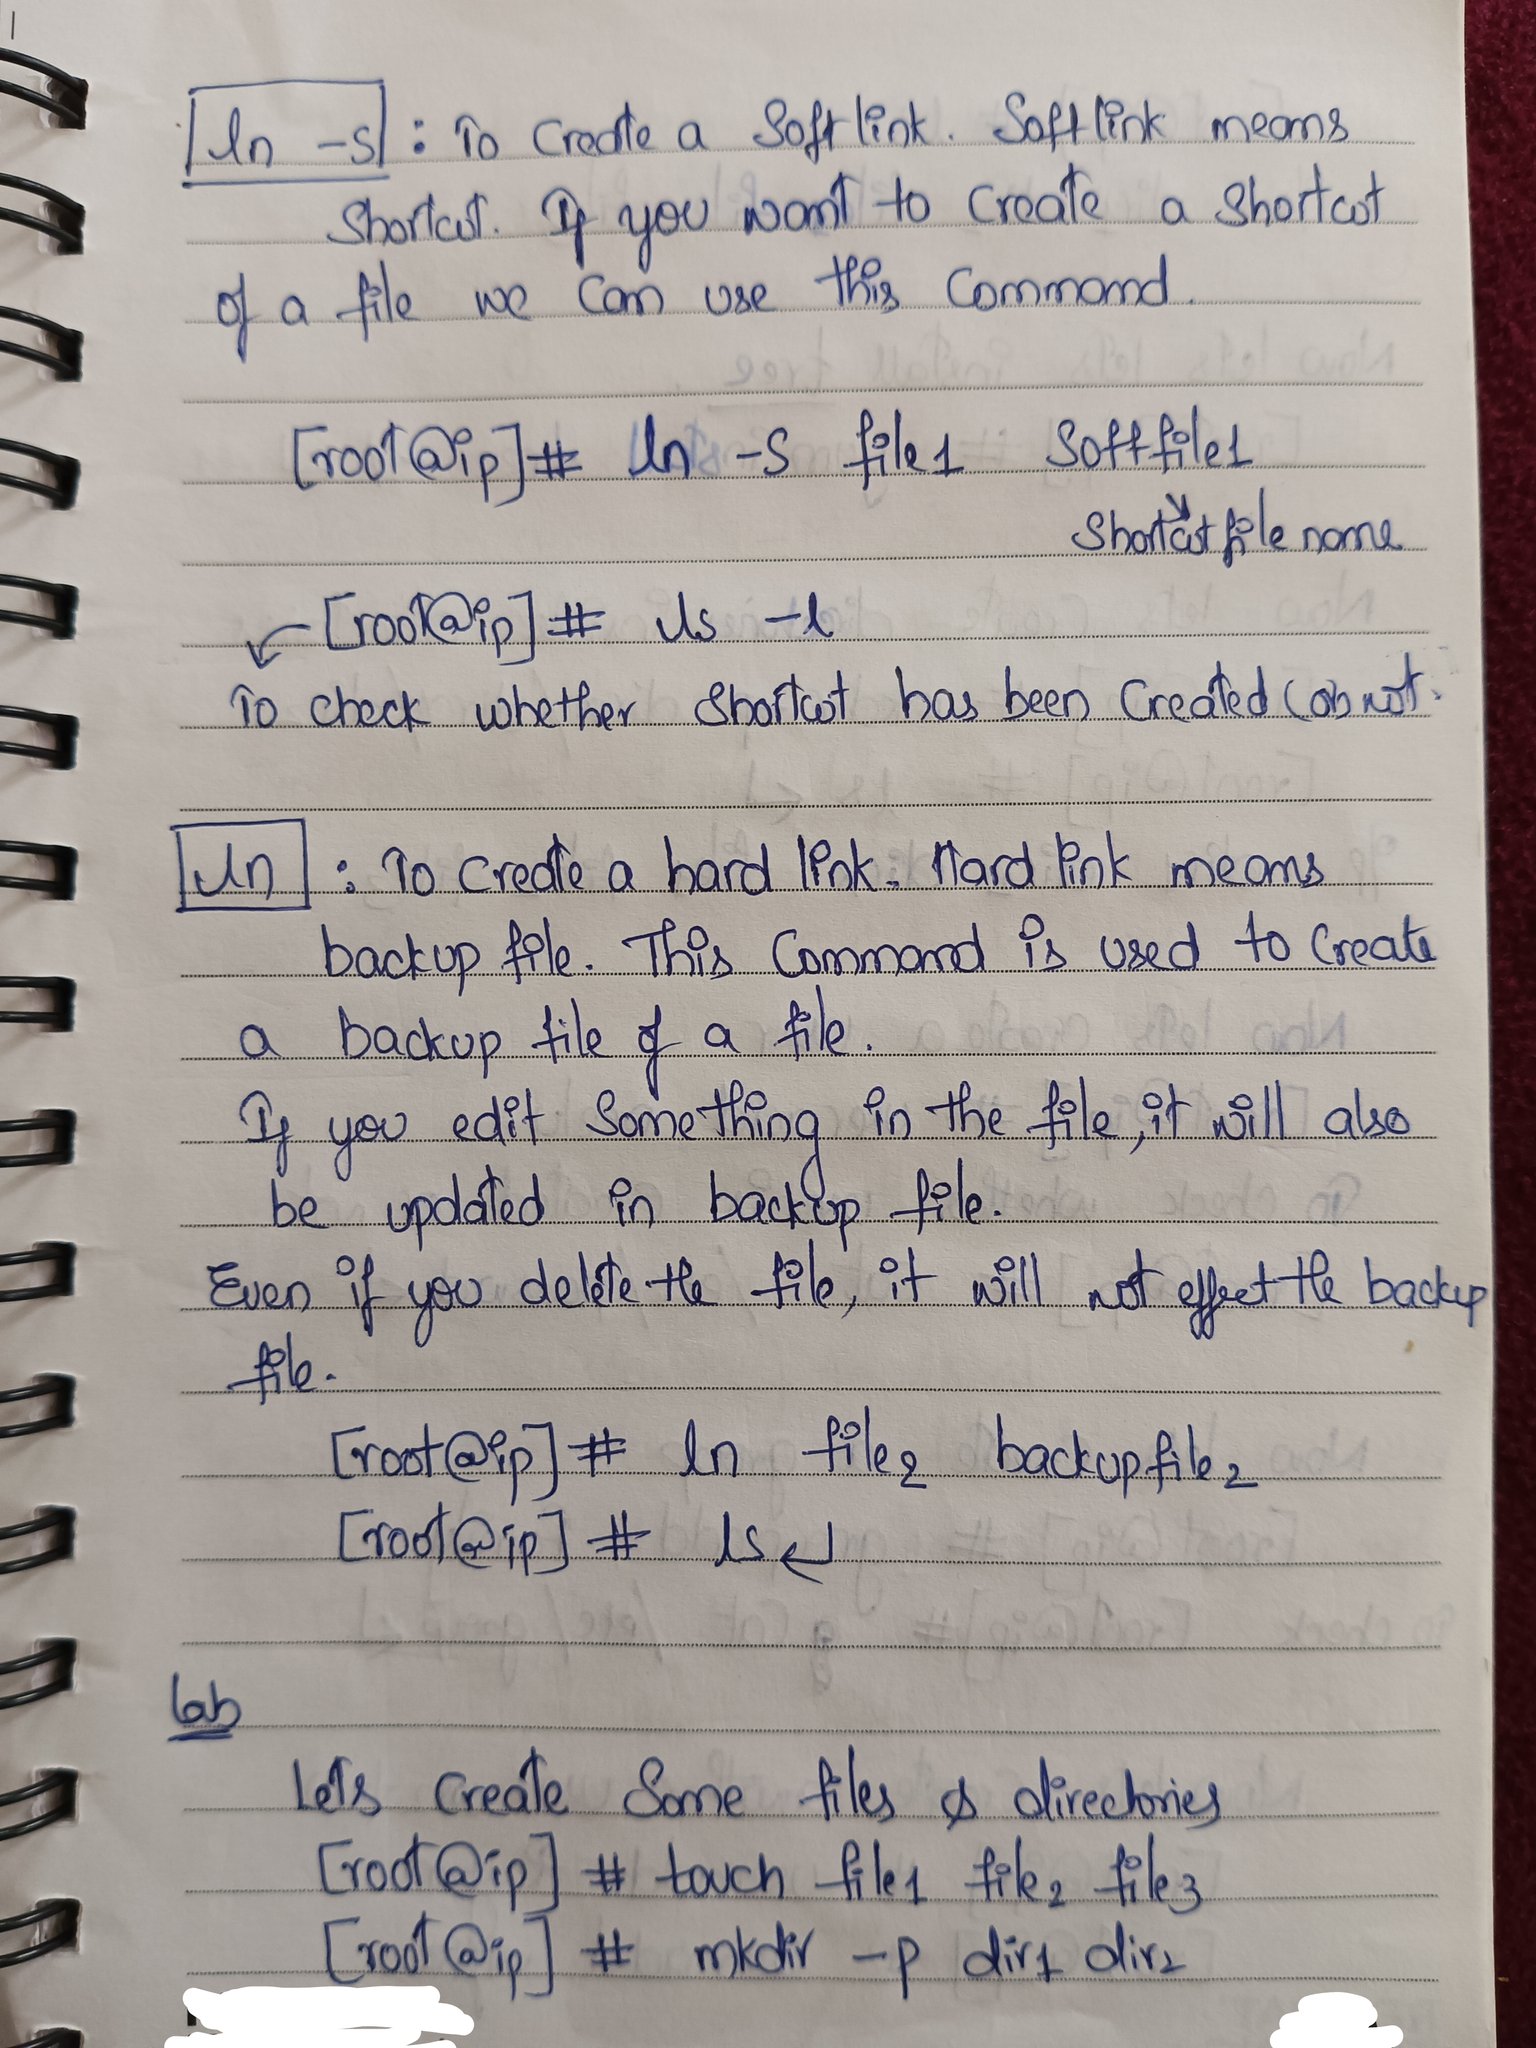 ln -s : To create a Softlink. Softlink means
Shortcut. If you want to create a Shortcut
of a file we can use this command.
[root@ip]# ln -s file1 Softfile1
Shortcut file name
[root@ip]# ls -l
To check whether Shortcut has been created (or) not.
ln : To create a hard link. Hard link means
backup file. This command is used to create
a backup file of a file.
If you edit something in the file, it will also
be updated in backup file.
Even if you delete the file, it will not effect the backup
file.
[root@ip]# ln file2 backupfile2
[root@ip]# ls ↵
Lab
Lets create some files & directories
[root@ip] # touch file1 file2 file3
[root@ip] # mkdir -p dir1 dir2